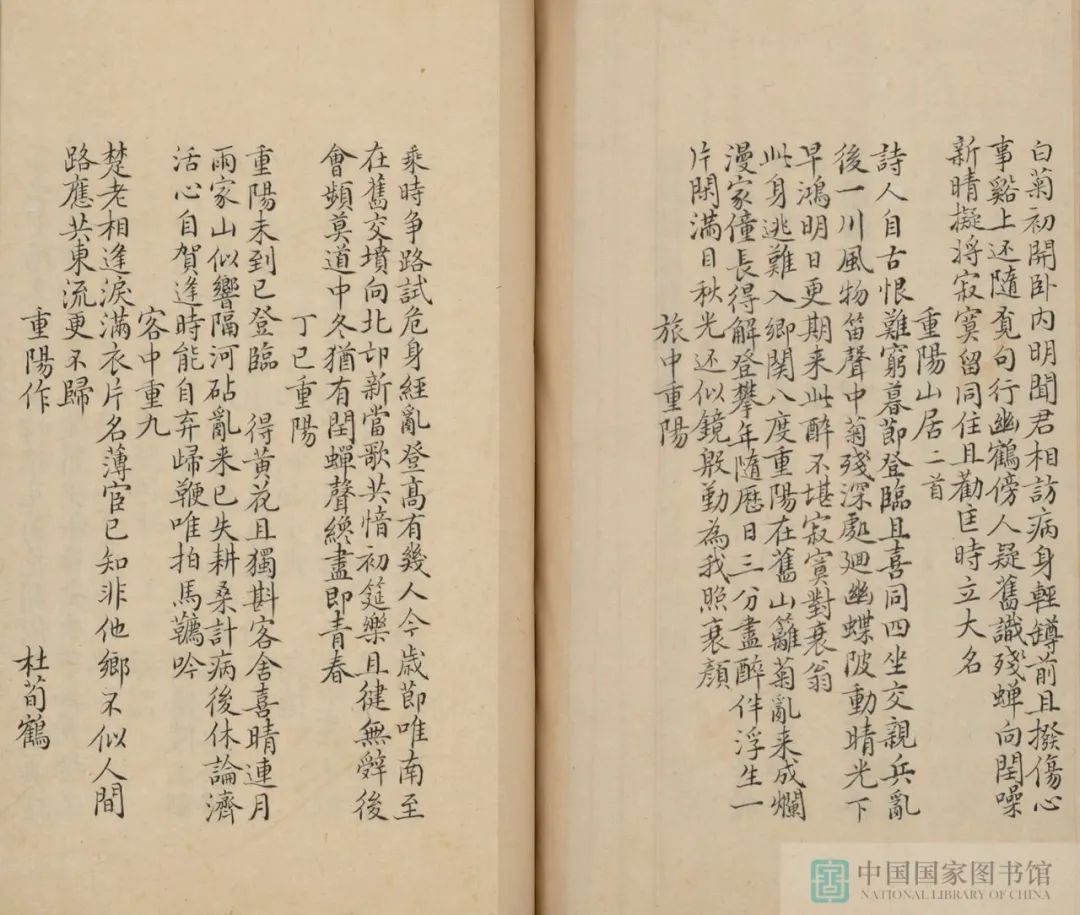 白菊初開卧内明聞君相訪病身輕罇前且撥傷心
事谿上还隨覔句行幽鶴傍人疑舊識殘蟬向閏噪
新晴擬將寂寞留同住且勸匡時立大名
重陽山居二首
詩人自古恨難窮暮節登臨且喜同四坐交親兵亂
後一川風物笛聲中菊殘深處廻幽蝶陂動晴光下
早鴻明日更期来此醉不堪寂寞對衰翁
此身逃難入鄉関八度重陽在舊山籬菊亂来成爛
漫家僮長得解登攀年隨曆日三分盡醉伴浮生一
片閑滿目秋光还似鏡殷勤為我照衰顔
旅中重陽
乘時争路試危身經亂登髙有幾人今歳節唯南至
在舊交墳向北邙新當歌共惜初筵樂且健無辤後
會頻莫道中冬猶有閏蟬聲纔盡即青春
丁巳重陽
重陽未到已登臨 得黄花且獨斟客舍喜晴連月
雨家山似響隔河砧亂来已失耕桑計病後休論濟
活心自賀逢時能自弃歸鞭唯拍馬韉吟
客中重九
楚老相逢淚滿衣片名薄宦已知非他鄉不似人間
路應共東流更不歸
重陽作 杜荀鶴
中国国家图书馆
NATIONAL LIBRARY OF CHINA